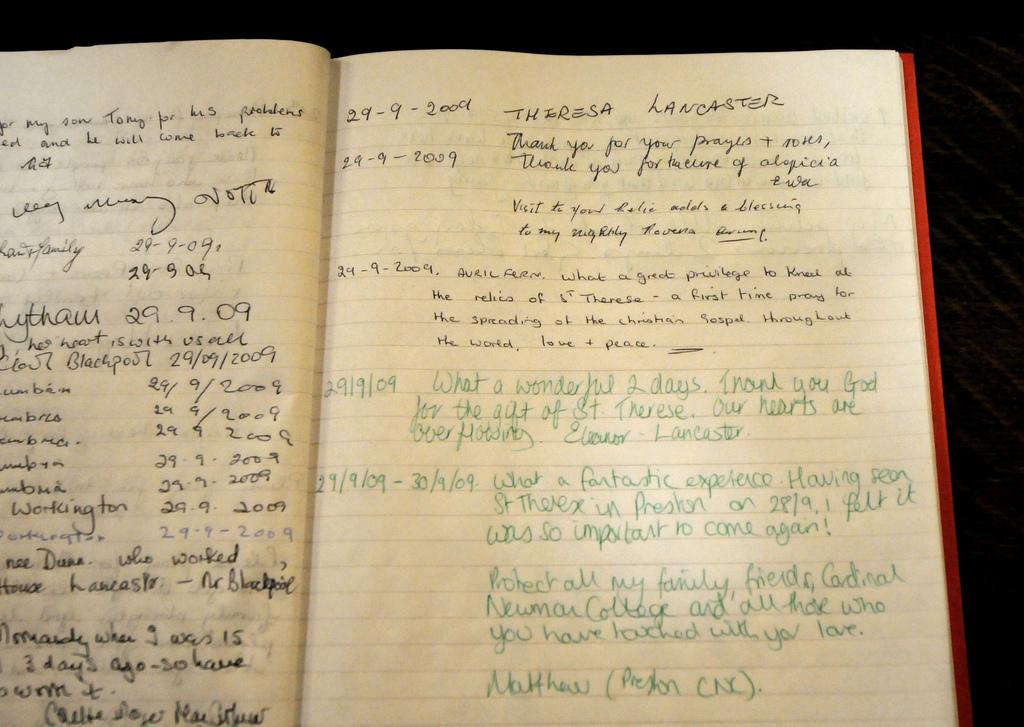 for my son Tony for his problems
ed and he will come back to
family 29-9-09.
29-9-09
Lytham 29.9.09
her heart is with us all
Blackpool 29/09/2009
umbria 29/9/2009
umbria 29 9/2009
umbria. 29 9 2009
umbria 29-9-2009
umbria 29-9-2009
Workington 29.9.2009
orkington 29-9-2009
nee Dunn. who worked
House Lancaster — Nr Blackpool
Normandy when I was 15
3 days ago-so have
29-9-2009 THERESA LANCASTER
Thank you for your prayers + roses,
29-9-2009 Thank you for the cure of alopicia
Ewa
Visit to your Relic adds a blessing
to my nightly Novena
29-9-2009. AVRIL FERN. What a great privilege to kneel at
the relics of St Therese - a first time pray for
the spreading of the christian Gospel throughout
the world, love + peace.
29/9/09 What a wonderful 2 days. Thank you God
for the gift of St. Therese. Our hearts are
overflowing. Eleanor - Lancaster.
29/9/09 - 30/9/09. What a fantastic experience. Having seen
St Therese in Preston on 28/9, I felt it
was so important to come again!
Protect all my family, friends, Cardinal
Newman College and all those who
you have touched with your love.
Matthew (Preston CNC).